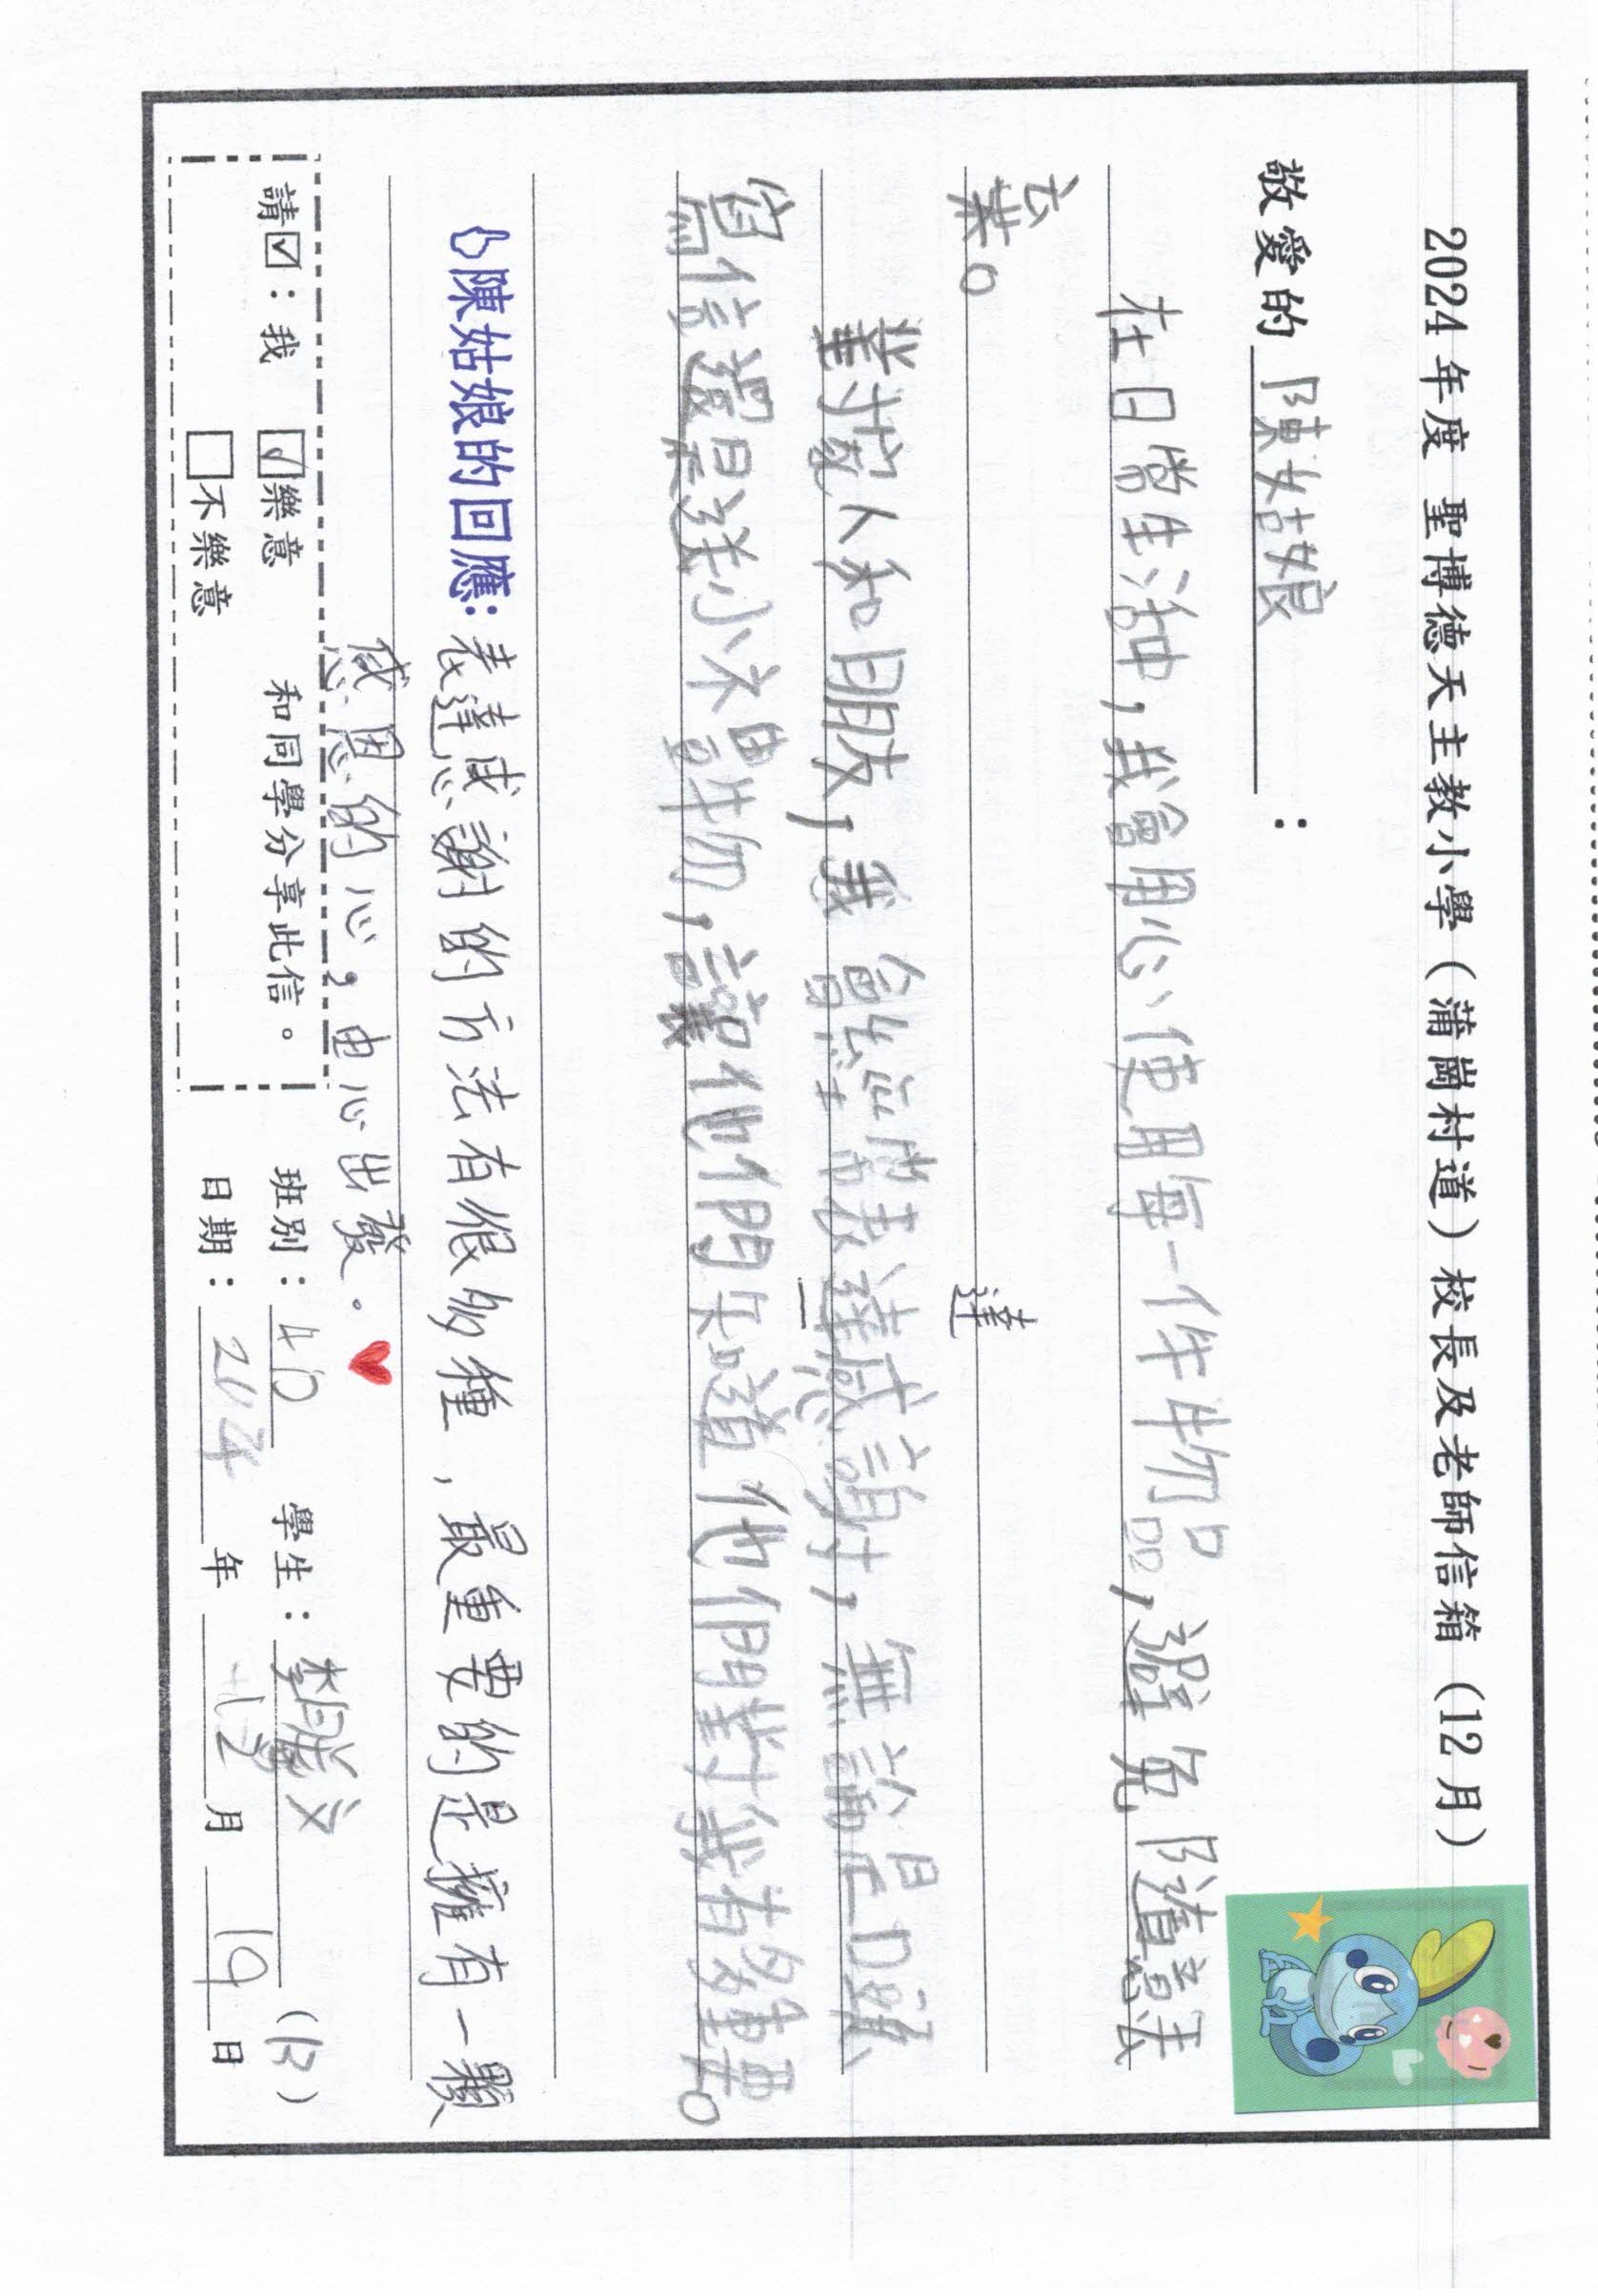 2024年度 聖博德天主教小學（蒲崗村道）校長及老師信箱（12月）
敬愛的 陳姑娘 ：
在日常生活中，我會用心使用每一件物品，避免隨意丟
棄。
達
對家人和朋友，我會經常表達感謝，無論是口頭、
寫信還是送小禮物，讓他們知道他們對我有多重要。
陳姑娘的回應：表達感謝的方法有很多種，最重要的是擁有一顆
感恩的心，由心出發。
請☑：我 ☑樂意 和同學分享此信。
□不樂意
班別：4D 學生：李 文 (13)
日期： 年 12 月 19 日